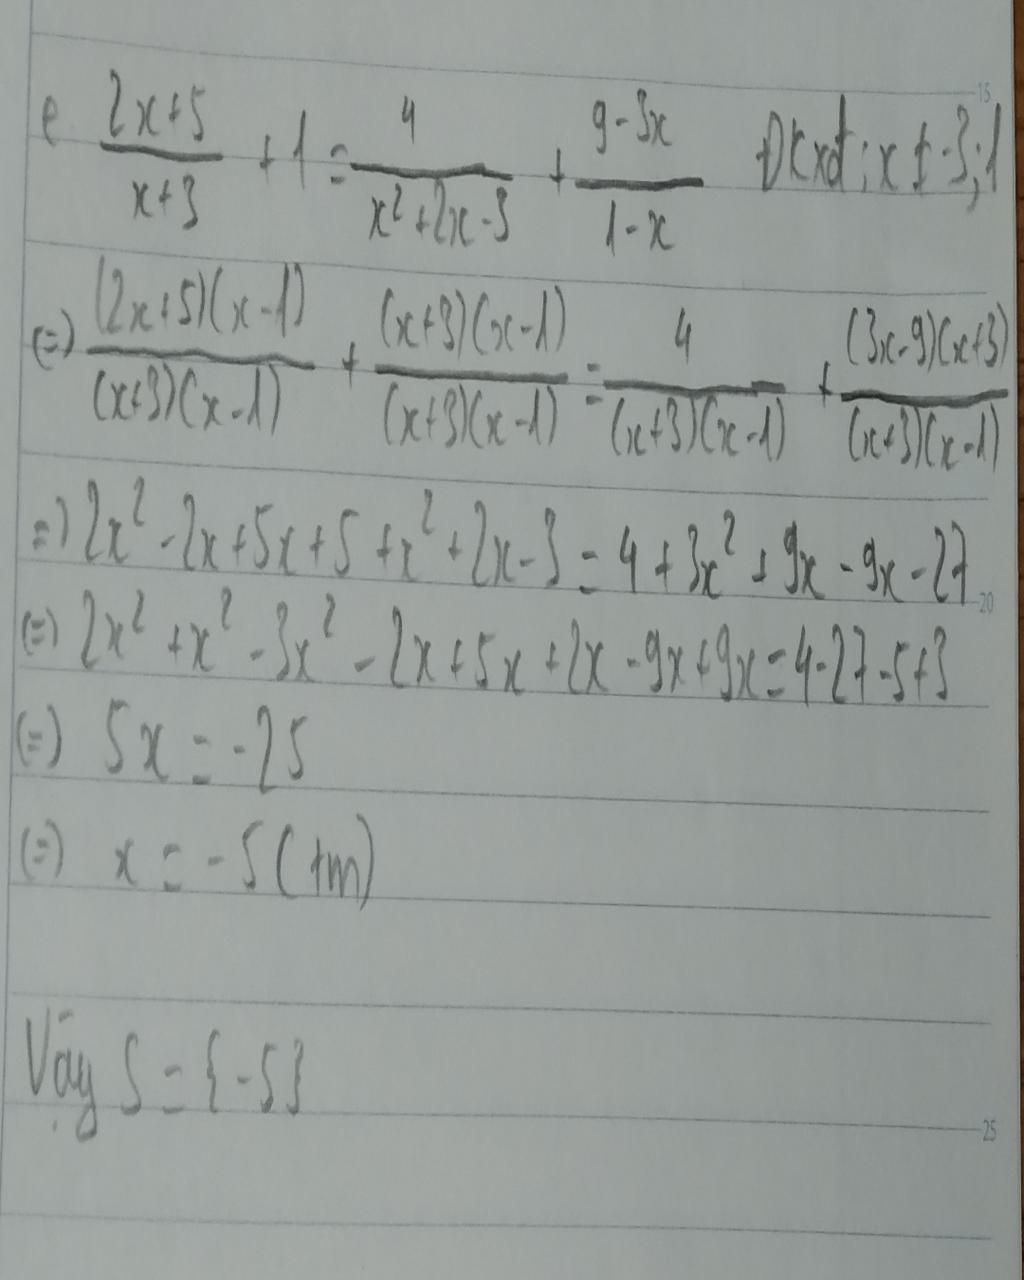 e. (2x+5)/(x+3) + 1 = 4/(x²+2x-3) + (9-3x)/(1-x) Đkxđ: x ≠ -3; 1
(=) (2x+5)(x-1)/(x+3)(x-1) + (x+3)(x-1)/(x+3)(x-1) = 4/(x+3)(x-1) + (3x-9)(x+3)/(x+3)(x-1)
=) 2x² - 2x + 5x + 5 + x² + 2x - 3 = 4 + 3x² + 9x - 9x - 27
(=) 2x² + x² - 3x² - 2x + 5x + 2x - 9x + 9x = 4 - 27 - 5 + 3
(=) 5x = -25
(=) x = -5 (tm)
Vậy S = {-5}
15
20
25